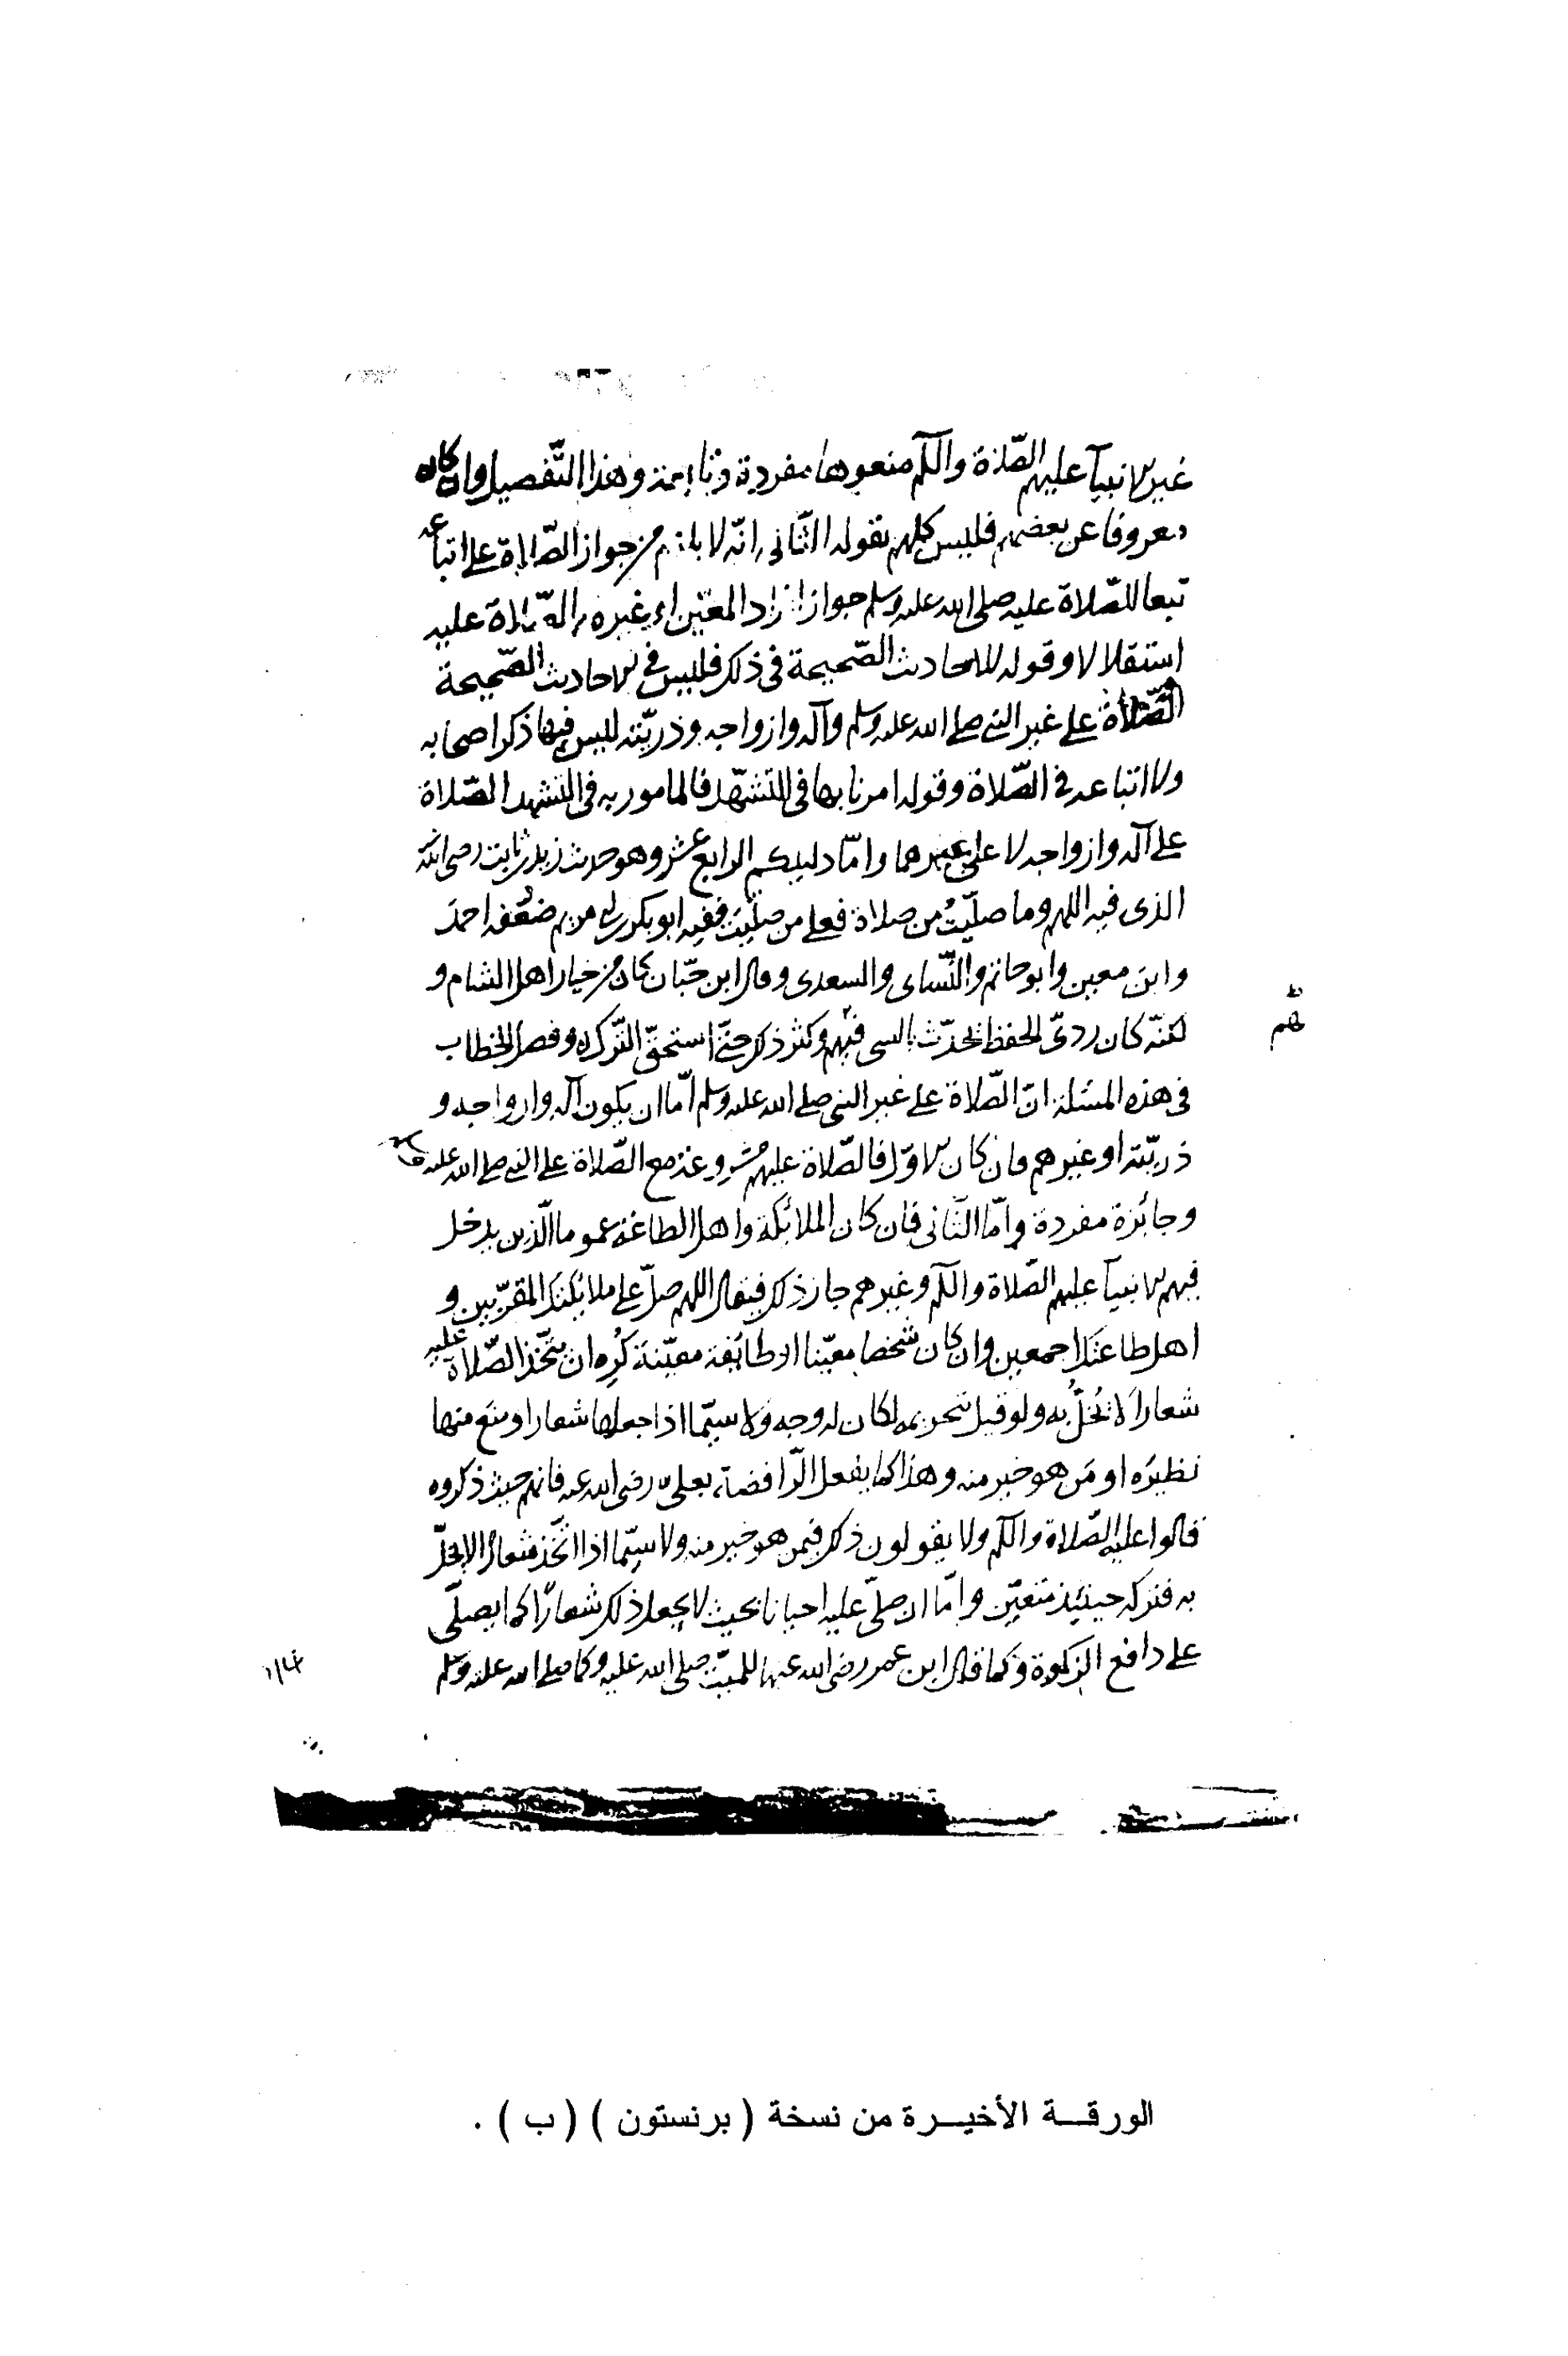 غير الانبيآ عليهم الصّلاة والسّلام منعوها مفردة وتابعة وهذا التّفصيل وان كان
معروفا عن بعضهم فليس كلهم يقوله الثّاني انّه لا يلزم من جواز الصّلاة على اتباعه
تبعا للصّلاة عليه صلى الله عليه وسلم جواز افراد المعيّن او غيره بالصّلاة عليه
استقلالا وقوله للاحاديث الصّحيحة في ذلك فليس في الاحاديث الصّحيحة
الصّلاة على غير النبي صلى الله عليه وسلم وآله وازواجه وذريّته ليس فيها ذكر اصحابه
ولا اتباعه في الصّلاة وقوله امرنا بها في التشهّد فالمامور به في التشهد الصّلاة
على آله وازواجه لا على غيرهما وامّا دليلكم الرابع عشر وهو حديث زيد بن ثابت رضي الله
الذي فيه اللهم وما صلّيتُ من صلاة فعلى من صلّيتَ ففيه ابو بكر بن ابي مريم ضعّفه احمد
وابن معين وابو حاتم والنّساي والسعدى وقال ابن حبّان كان من خيار اهل الشام و
لكنّه كان ردىّ الحفظ يحدّث بالشي فيهم وكثر ذلك حتّى استحقّ التّرك وفصل الخطاب
يهم
ط
في هذه المسئلة انّ الصّلاة على غير النبي صلى الله عليه وسلم امّا ان يكون آله وازواجه و
ذريّته او غيرهم فان كان الاوّل فالصّلاة عليهم مشروعة مع الصّلاة على النبي صلى الله عليه وسلم
وجائزة مفردة وامّا الثّاني فان كان الملائكة واهل الطاعة عموما الّذين يدخل
فيهم الانبيآ عليهم الصّلاة والسّلام وغيرهم جاز ذلك فيقال اللهم صلّ على ملائكتك المقرّبين و
اهل طاعتك اجمعين وان كان شخصا معيّنا او طائفة معيّنة كُرِه ان يتّخذ الصّلاة عليه
شعارا لا يُخلّ به ولو قيل بتحريمه لكان له وجه ولا سيّما اذا جعلها شعارا ومنَع منها
نظيرَه او مَن هو خير منه وهذا كما يفعل الرّافضة بعليّ رضي الله عنه فانهم حيث ذكروه
قالوا عليه الصّلاة والسّلام ولا يقولون ذلك فيمن هو خير منه ولا سيّما اذا اتّخذ شعارًا لا يخلّ
به فتركه حينئذ متعيّن وامّا ان صلّى عليه احيانا بحيث لا يجعل ذلك شعارًا كما يصلّى
على دافع الزكوة وكما قال ابن عمر رضي الله عنهما للميّت صلى الله عليه وكما صلى الله عليه وسلم
الورقـة الأخيـرة من نسخة ( برنستون ) ( ب ) .